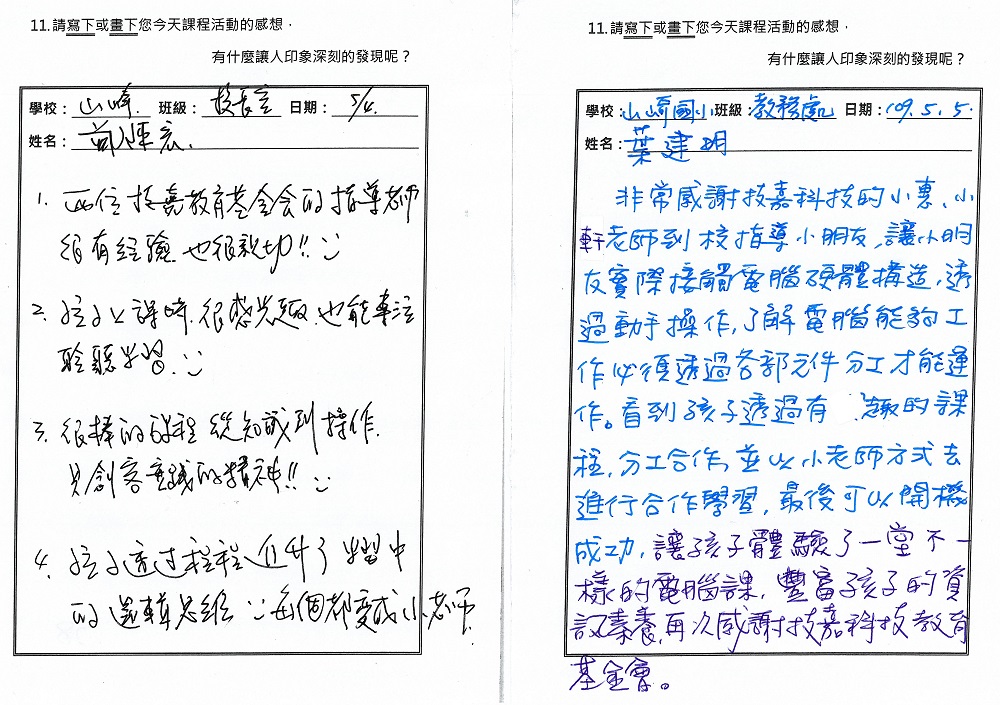 11.請寫下或畫下您今天課程活動的感想，
有什麼讓人印象深刻的發現呢？
學校：山崎. 班級：校長室 日期：5/4.
姓名：
1. 兩位技嘉教育基金会的指導老師
很有经驗 也很親切!!
2. 孩子上課時 很感兴趣 也能專注
聆聽学習.
3. 很棒的課程 從知識到操作
具創客實踐的精神!!
4. 孩子透过程程 提升了 學習中
的邏輯思維 每個都變成小老師.
11.請寫下或畫下您今天課程活動的感想，
有什麼讓人印象深刻的發現呢？
學校：山崎國小 班級：教務處 日期：109.5.5.
姓名：葉建明
非常感謝技嘉科技的小惠、小
軒老師到校指導小朋友，讓小朋
友實際接觸電腦硬體構造，透
過動手操作，了解電腦能夠工
作必須透過各部元件分工才能運
作。看到孩子透過有 趣的課
程，分工合作，並以小老師方式去
進行合作學習，最後可以開機
成功，讓孩子體驗了一堂不一
樣的電腦課，豐富孩子的資
訊素養，再次感謝技嘉科技教育
基金會。